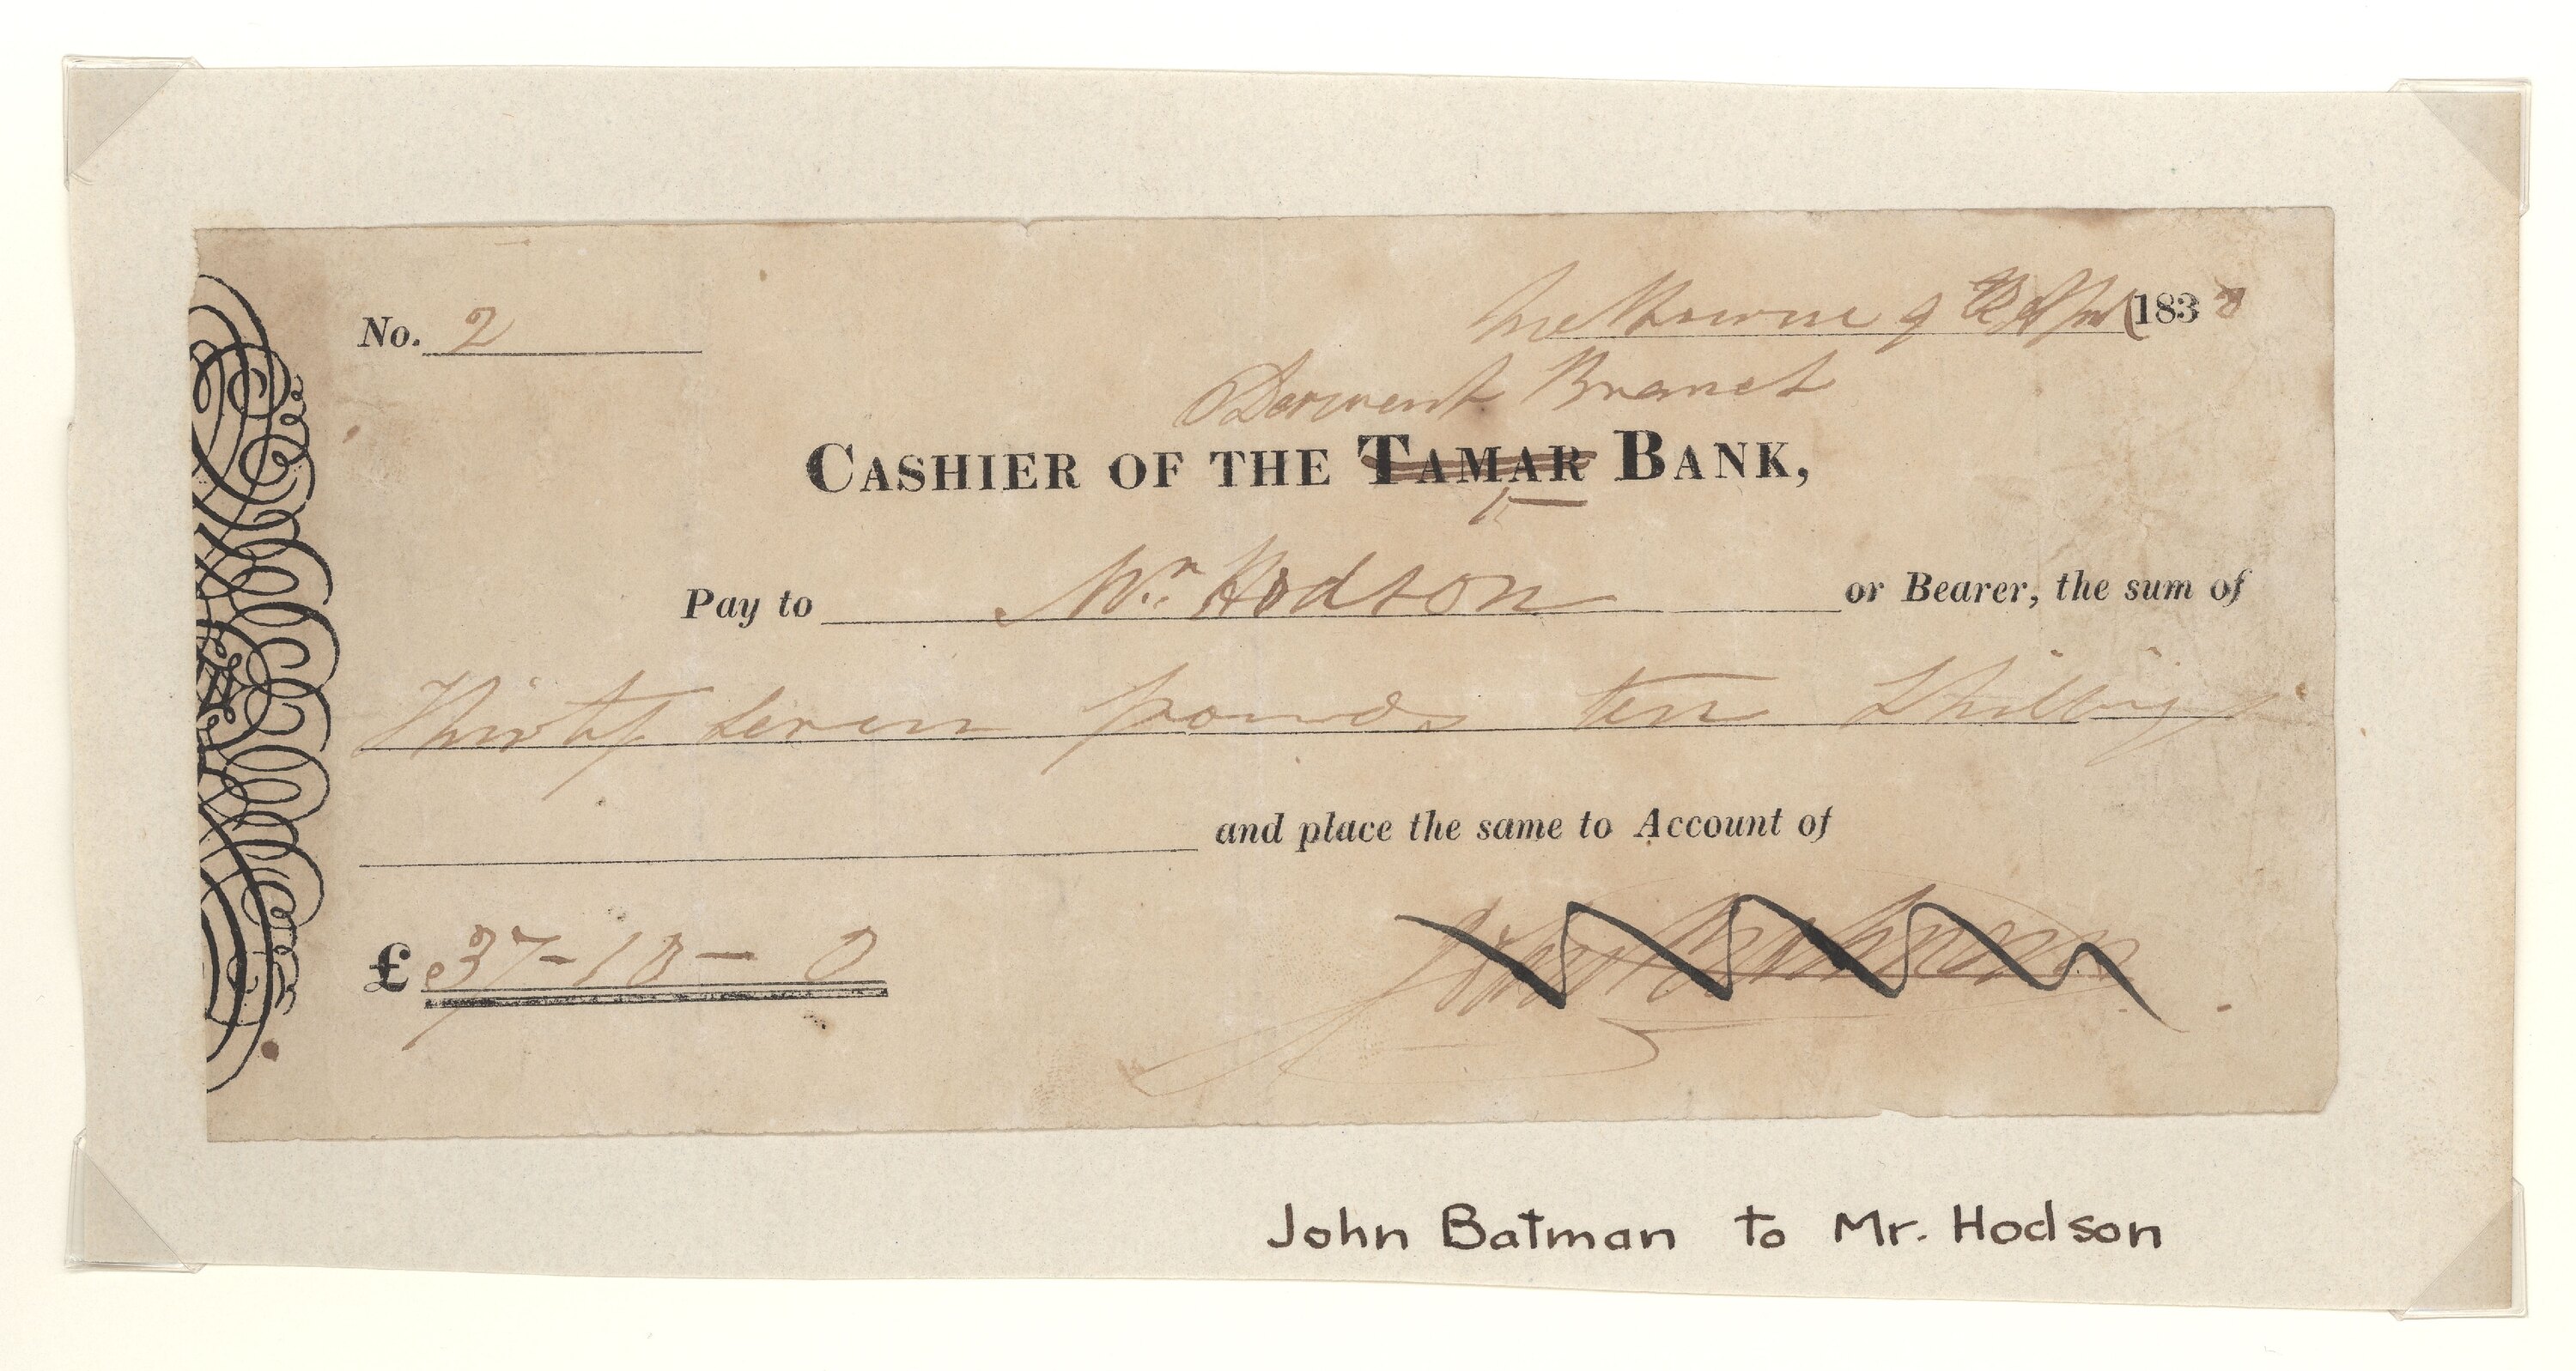 No. 2
Melbourne 9 April 1838
Derwent Branch
CASHIER OF THE TAMAR BANK,
Pay to Mr. Hodson or Bearer, the sum of
Thirty seven pounds ten Shillings
and place the same to Account of
£ 37-10-0
John Batman
John Batman to Mr. Hodson